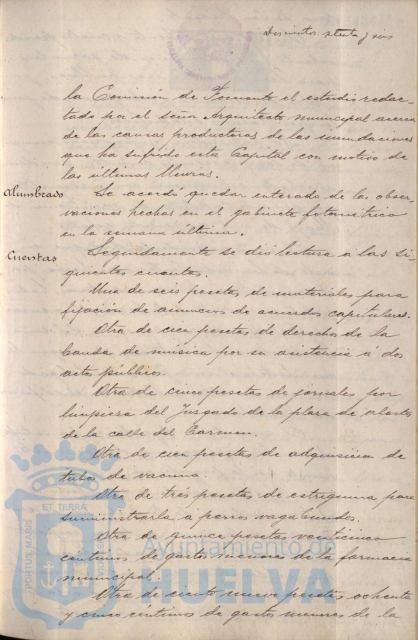 Doscientos setenta y seis
la Comisión de Fomento el estudio redac-
tado por el señor Arquitecto municipal acerca
de las causas productoras de las inundaciones
que ha sufrido esta Capital con motivo de
las últimas lluvias.
Alumbrado
Se acordó quedar enterado de las obser-
vaciones hechas en el gabinete fotométrico
en la semana última.
Cuentas
Seguidamente se dió lectura a las si-
guientes cuentas.
Una de seis pesetas de materiales para
fijación de anuncios de acuerdos capitulares.
Otra de cien pesetas de derechos de la
banda de música por su asistencia a dos
actos públicos.
Otra de cinco pesetas de jornales por
limpieza del Juzgado de la plaza de abastos
de la calle del Carmen.
Otra de cien pesetas de adquisición de
tubos de vacuna.
Otra de tres pesetas de estregnina para
suministrarla a perros vagabundos.
Otra de quince pesetas veinticinco
céntimos de gastos menores de la farmacia
municipal.
Otra de ciento nueve pesetas ochenta
y cinco céntimos de gastos menores de la
PORTUS MARIS
ET TERRAE
Ayuntamiento de
HUELVA